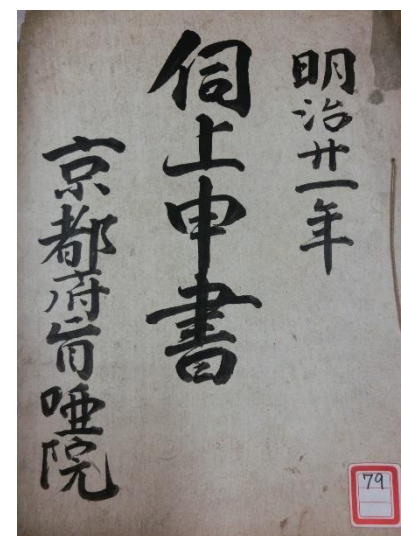 明治廿一年
伺上申書
京都府盲唖院
79